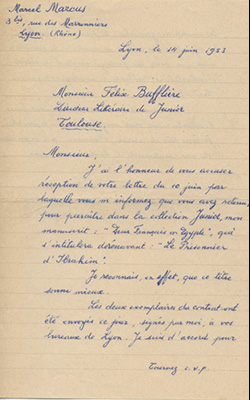 Marcel Marcus
3 bis, rue des Marronniers
Lyon (Rhône)
Lyon, le 14 juin 1953
Monsieur Félix Bufflière
Directeur Littéraire de Junior
Toulouse
Monsieur,
J'ai l'honneur de vous accuser
réception de votre lettre du 10 juin par
laquelle vous m'informez que vous avez retenu,
pour paraître dans la collection Junior, mon
manuscrit : "Deux Français en Egypte", qui
s'intitulera dorénavant : "Le Prisonnier
d'Ibrahim".
Je reconnais, en effet, que ce titre
sonne mieux.
Les deux exemplaires du contrat ont
été envoyés ce jour, signés par moi, à vos
bureaux de Lyon. Je suis d'accord pour
Tournez s.v.p.